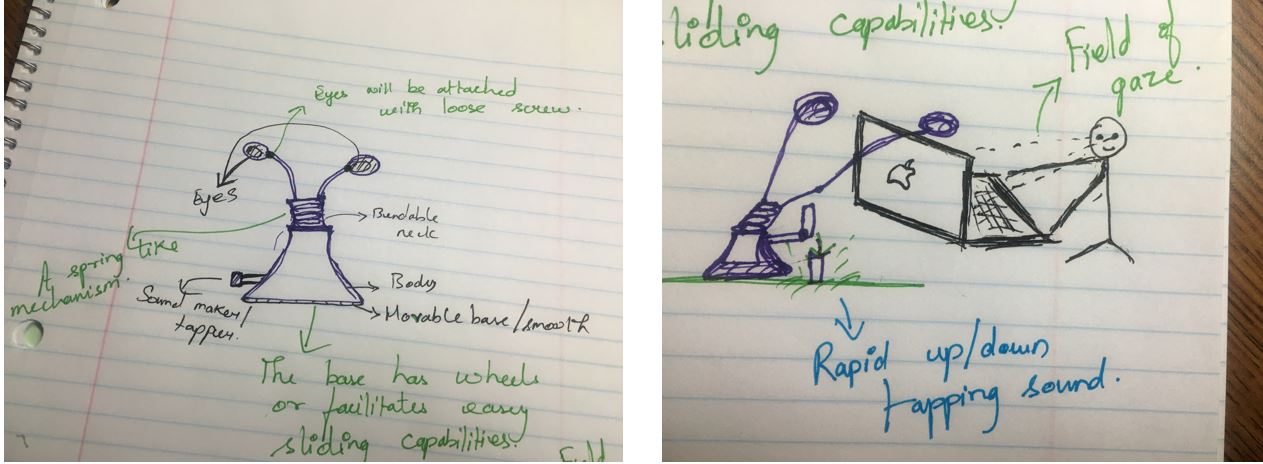 Eyes will be attached
with loose screw.
Eyes
Bendable
neck
A spring like
mechanism.
Sound maker/
tapper.
Body
Movable base/smooth
The base has wheels
or facilitates easy
sliding capabilities.
Field
liding capabilities.
Field of
gaze.
Rapid up/down
tapping sound.